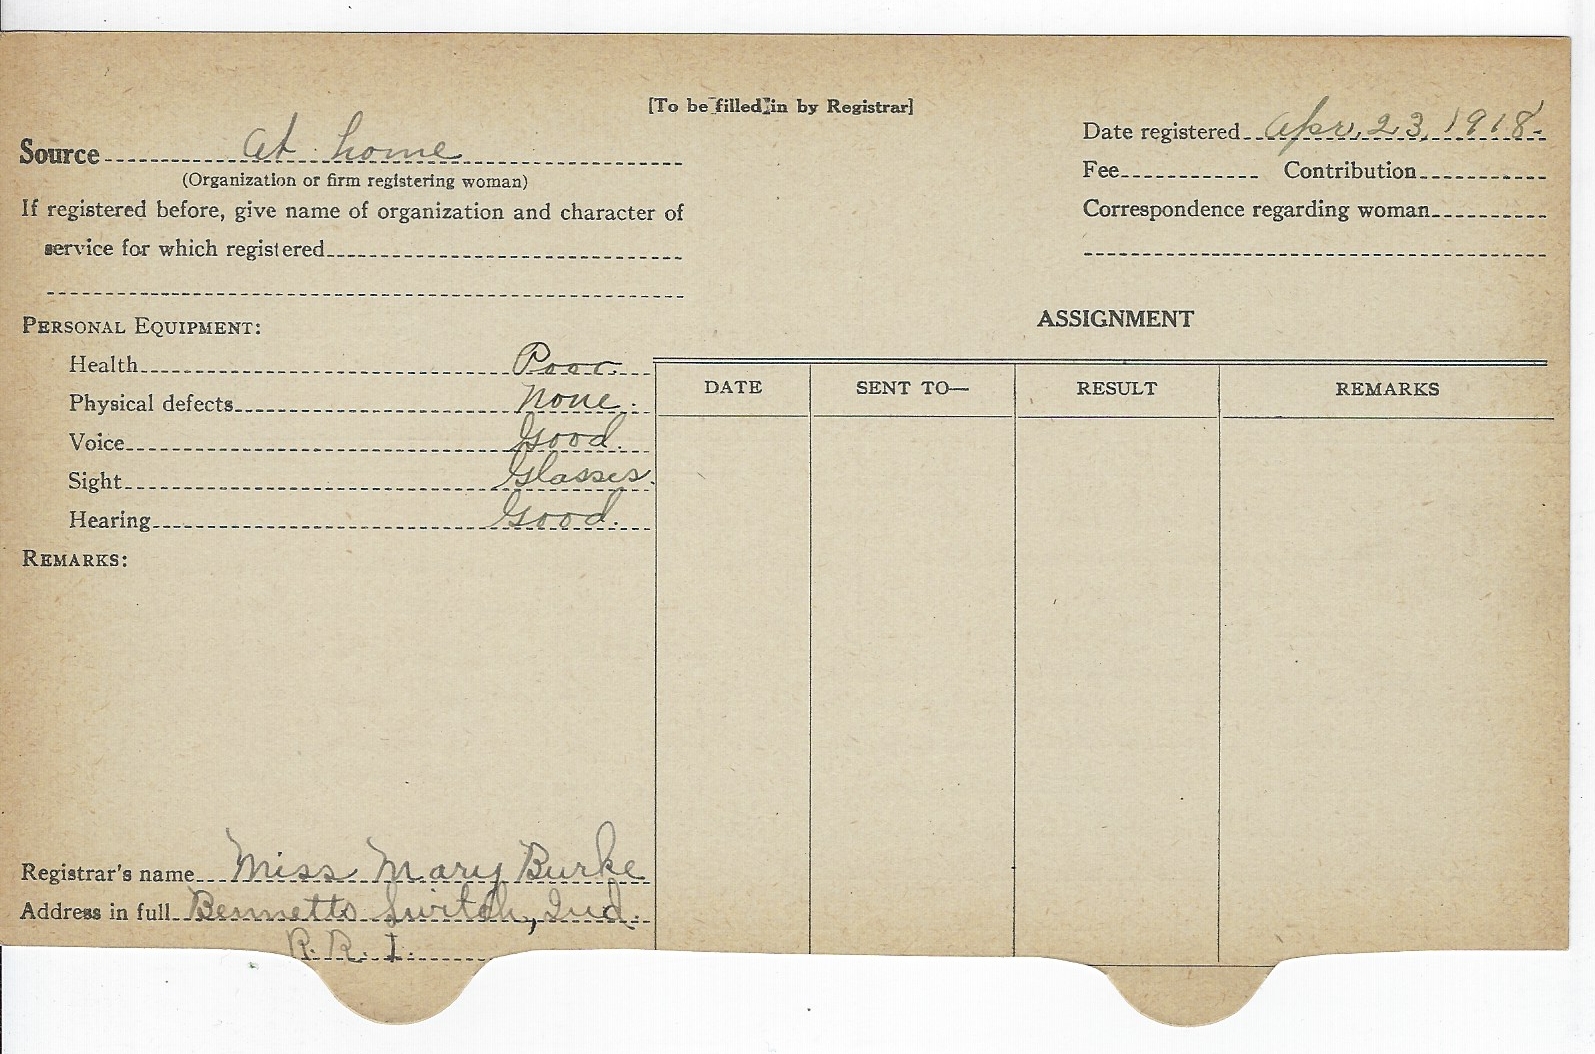 [To be filled in by Registrar]
Source At home
(Organization or firm registering woman)
If registered before, give name of organization and character of
service for which registered
Date registered Apr. 23, 1918.
Fee Contribution
Correspondence regarding woman
PERSONAL EQUIPMENT:
Health Poor.
Physical defects None.
Voice Good.
Sight Glasses.
Hearing Good.
REMARKS:
ASSIGNMENT
DATE SENT TO— RESULT REMARKS
Registrar's name Miss Mary Burke
Address in full Bennetts Switch, Ind.
R. R. 1.